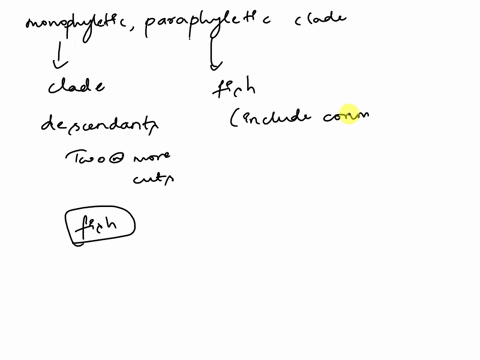 monophyletic, paraphyletic clade
clade fish
descendants (include comm
Two or more
cuts
fish